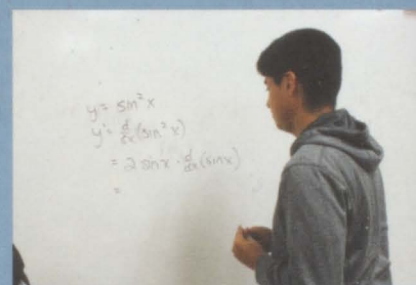 y = sin²x
y' = d/dx (sin²x)
= 2 sin x · d/dx (sin x)
=